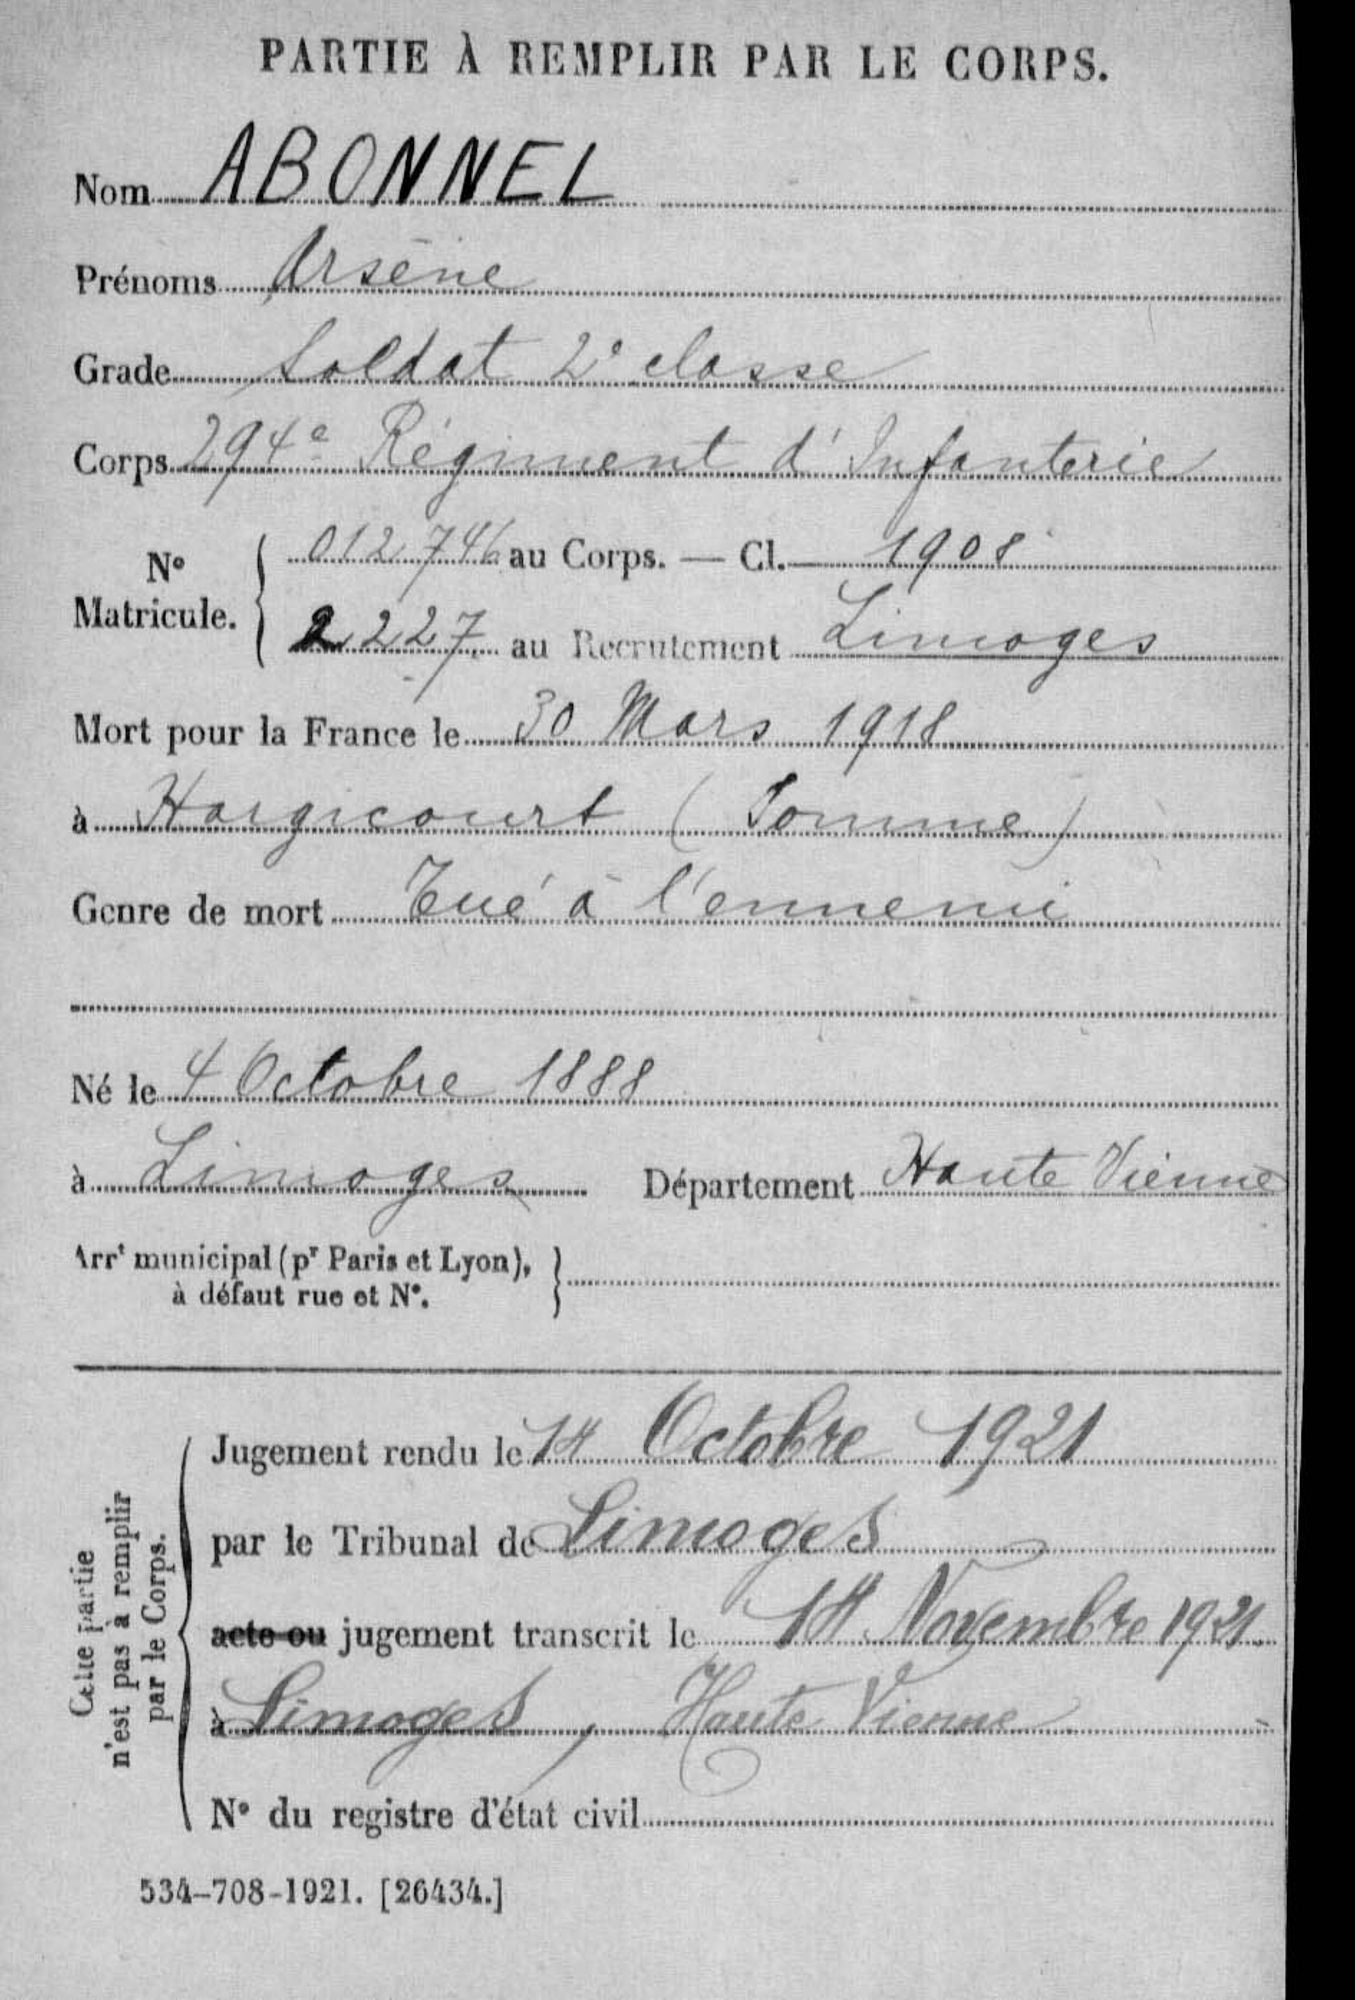 PARTIE À REMPLIR PAR LE CORPS.
Nom ABONNEL
Prénoms Arsène
Grade Soldat 2e classe
Corps 294e Régiment d'Infanterie
No Matricule. { 012746 au Corps. — Cl. 1908
2227 au Recrutement Limoges
Mort pour la France le 30 Mars 1918
à Hargicourt (Somme)
Genre de mort Tué à l'ennemi
Né le 4 Octobre 1888
à Limoges Département Haute Vienne
Arrt municipal (pr Paris et Lyon), }
à défaut rue et No.
Cette partie
n'est pas à remplir
par le Corps.
Jugement rendu le 14 Octobre 1921
par le Tribunal de Limoges
acte ou jugement transcrit le 14 Novembre 1921.
à Limoges, Haute Vienne
No du registre d'état civil
534-708-1921. [26434.]